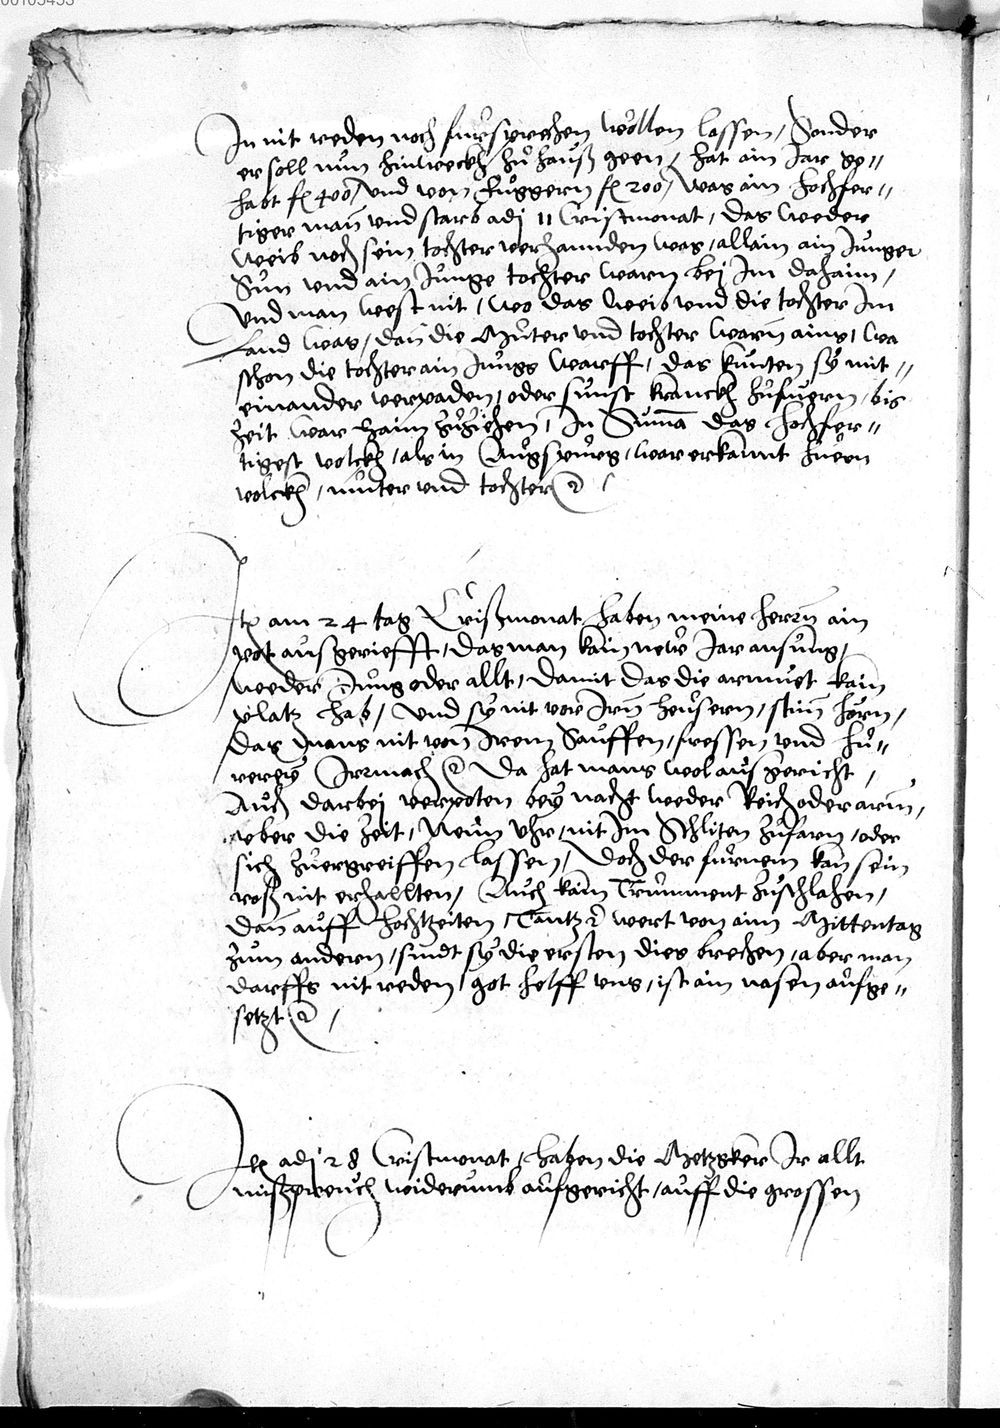 00105453
In nit reden noch fursprechen wöllen lassen, Sonder
er soll nun hinweckh zu hauß geen, hat ain Jar ge„
habt fl 400, und von Fuggern fl 200, was ain hochfer„
tiger man und starb adj 11 Cristmonat, das weder
weib noch sein tochter verhannden was, allain ain Junger
Sun und ain Junge tochter warn bej Im dahaim,
Und man west nit, wo das weib und die tochter Im
Land was, dan die Muter und tochter warn ains, wa
schon die tochter ain Jungs warff, das kunten sy mit„
einander verpaden, oder sunst kranckh zufuern, bis
zeit war haim zuziehen, In Suma das hochfer„
tigest volckh, als in Augspurg, war erkannt hueren
volckh, muter und tochter (2) /
Itē am 24 tag Crißmonat haben meine herrn ain
pot ausgeriefft, das man kain new Jar ansung,
weeder Jung oder allt, damit das die armuet kain
platz hab, Und sy nit vor Irn heusern, stim horn,
das mans nit von Irem Sauffen, fressen und hu„
rerey Irrmach (2) Da hat mans wol ausgericht,
Auch darbei verpoten bey nacht weeder Reich oder arm,
uber die zeit, Neun Uhr, nit Im Schliten zufarn, oder
sich zuergreiffen lassen, Doch der furnem kan sein
roß nit erhallten, Auch kain Trumment zuschlahen,
Dan auff Hochtzeiten, Tantz (2) wert von aim Mittentag
zum andern, sindt sy die ersten dies brechen, aber man
darffs nit reden, got helff uns, ist ain nasen aufge„
setzt (2) /
Itē adj 28 Cristmonat, haben die Metzgker Ir allt
mißpreuch widerumb aufgericht, auff die grossen